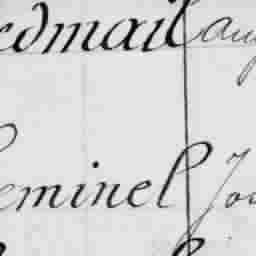 edmail au
eminel Jo